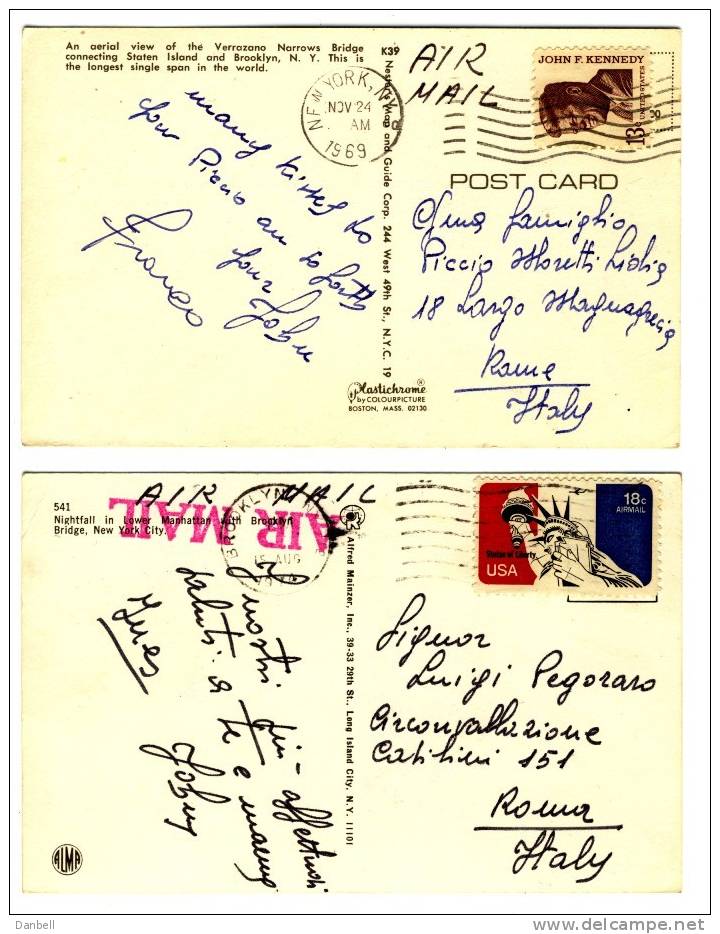 An aerial view of the Verrazano Narrows Bridge
connecting Staten Island and Brooklyn, N. Y. This is
the longest single span in the world.
K39
Nester's Map and Guide Corp. 244 West 49th St., N.Y.C. 19
AIR
MAIL
NEW YORK, N.Y.
NOV 24
AM
1969
JOHN F. KENNEDY
UNITED STATES
13c
POST CARD
many kisses to
your Piccio
your Johnu
Franco
Piccio Moretti Lidia
18 Largo Magnagrecia
Rome
Italy
Plastichrome®
by COLOURPICTURE
BOSTON, MASS. 02130
AIR MAIL
541
Nightfall in Lower Manhattan with Brooklyn
Bridge, New York City.
AIR
MAIL
BROOKLYN, N
15 AUG
Alfred Mainzer, Inc., 39-33 29th St., Long Island City, N. Y. 11101
18c
AIRMAIL
Statue of Liberty
USA
I nostri più affettuosi
saluti a te e mamma
Ines
Johny
Signor
Luigi Pegoraro
Circonvallazione
151
Roma
Italy
ALMA
Danbell
delcampe.net